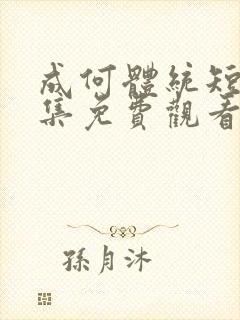 成何體統短
集免費觀看
孫月沐